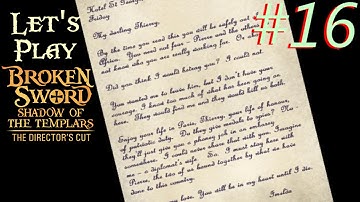 Let's
Play
BROKEN
SWORD
SHADOW OF
THE TEMPLARS
THE DIRECTOR'S CUT
#16
Hotel St
Friday
My darling Thierry,
By the time you read this you will be safely out
Africa. You need not fear - Pierre and the other
not know who you are really working for. Or
Did you think I would betray you? I could not.
You wanted me to leave him, but I don't have your
courage. I know too much of what has been going on
here. They would find me and they would kill us both.
Enjoy your life in Paris, Thierry, your life of honour,
of patriotic duty. Do they give medals to spies? No -
they'll just give you a phoney job in an embassy
somewhere. I could never share that with you. Imagine
me - a diplomat's wife. So, I must stay here with
Pierre, the two of us bound together by what we have
done to this country.
love. You will be in my heart until I die.